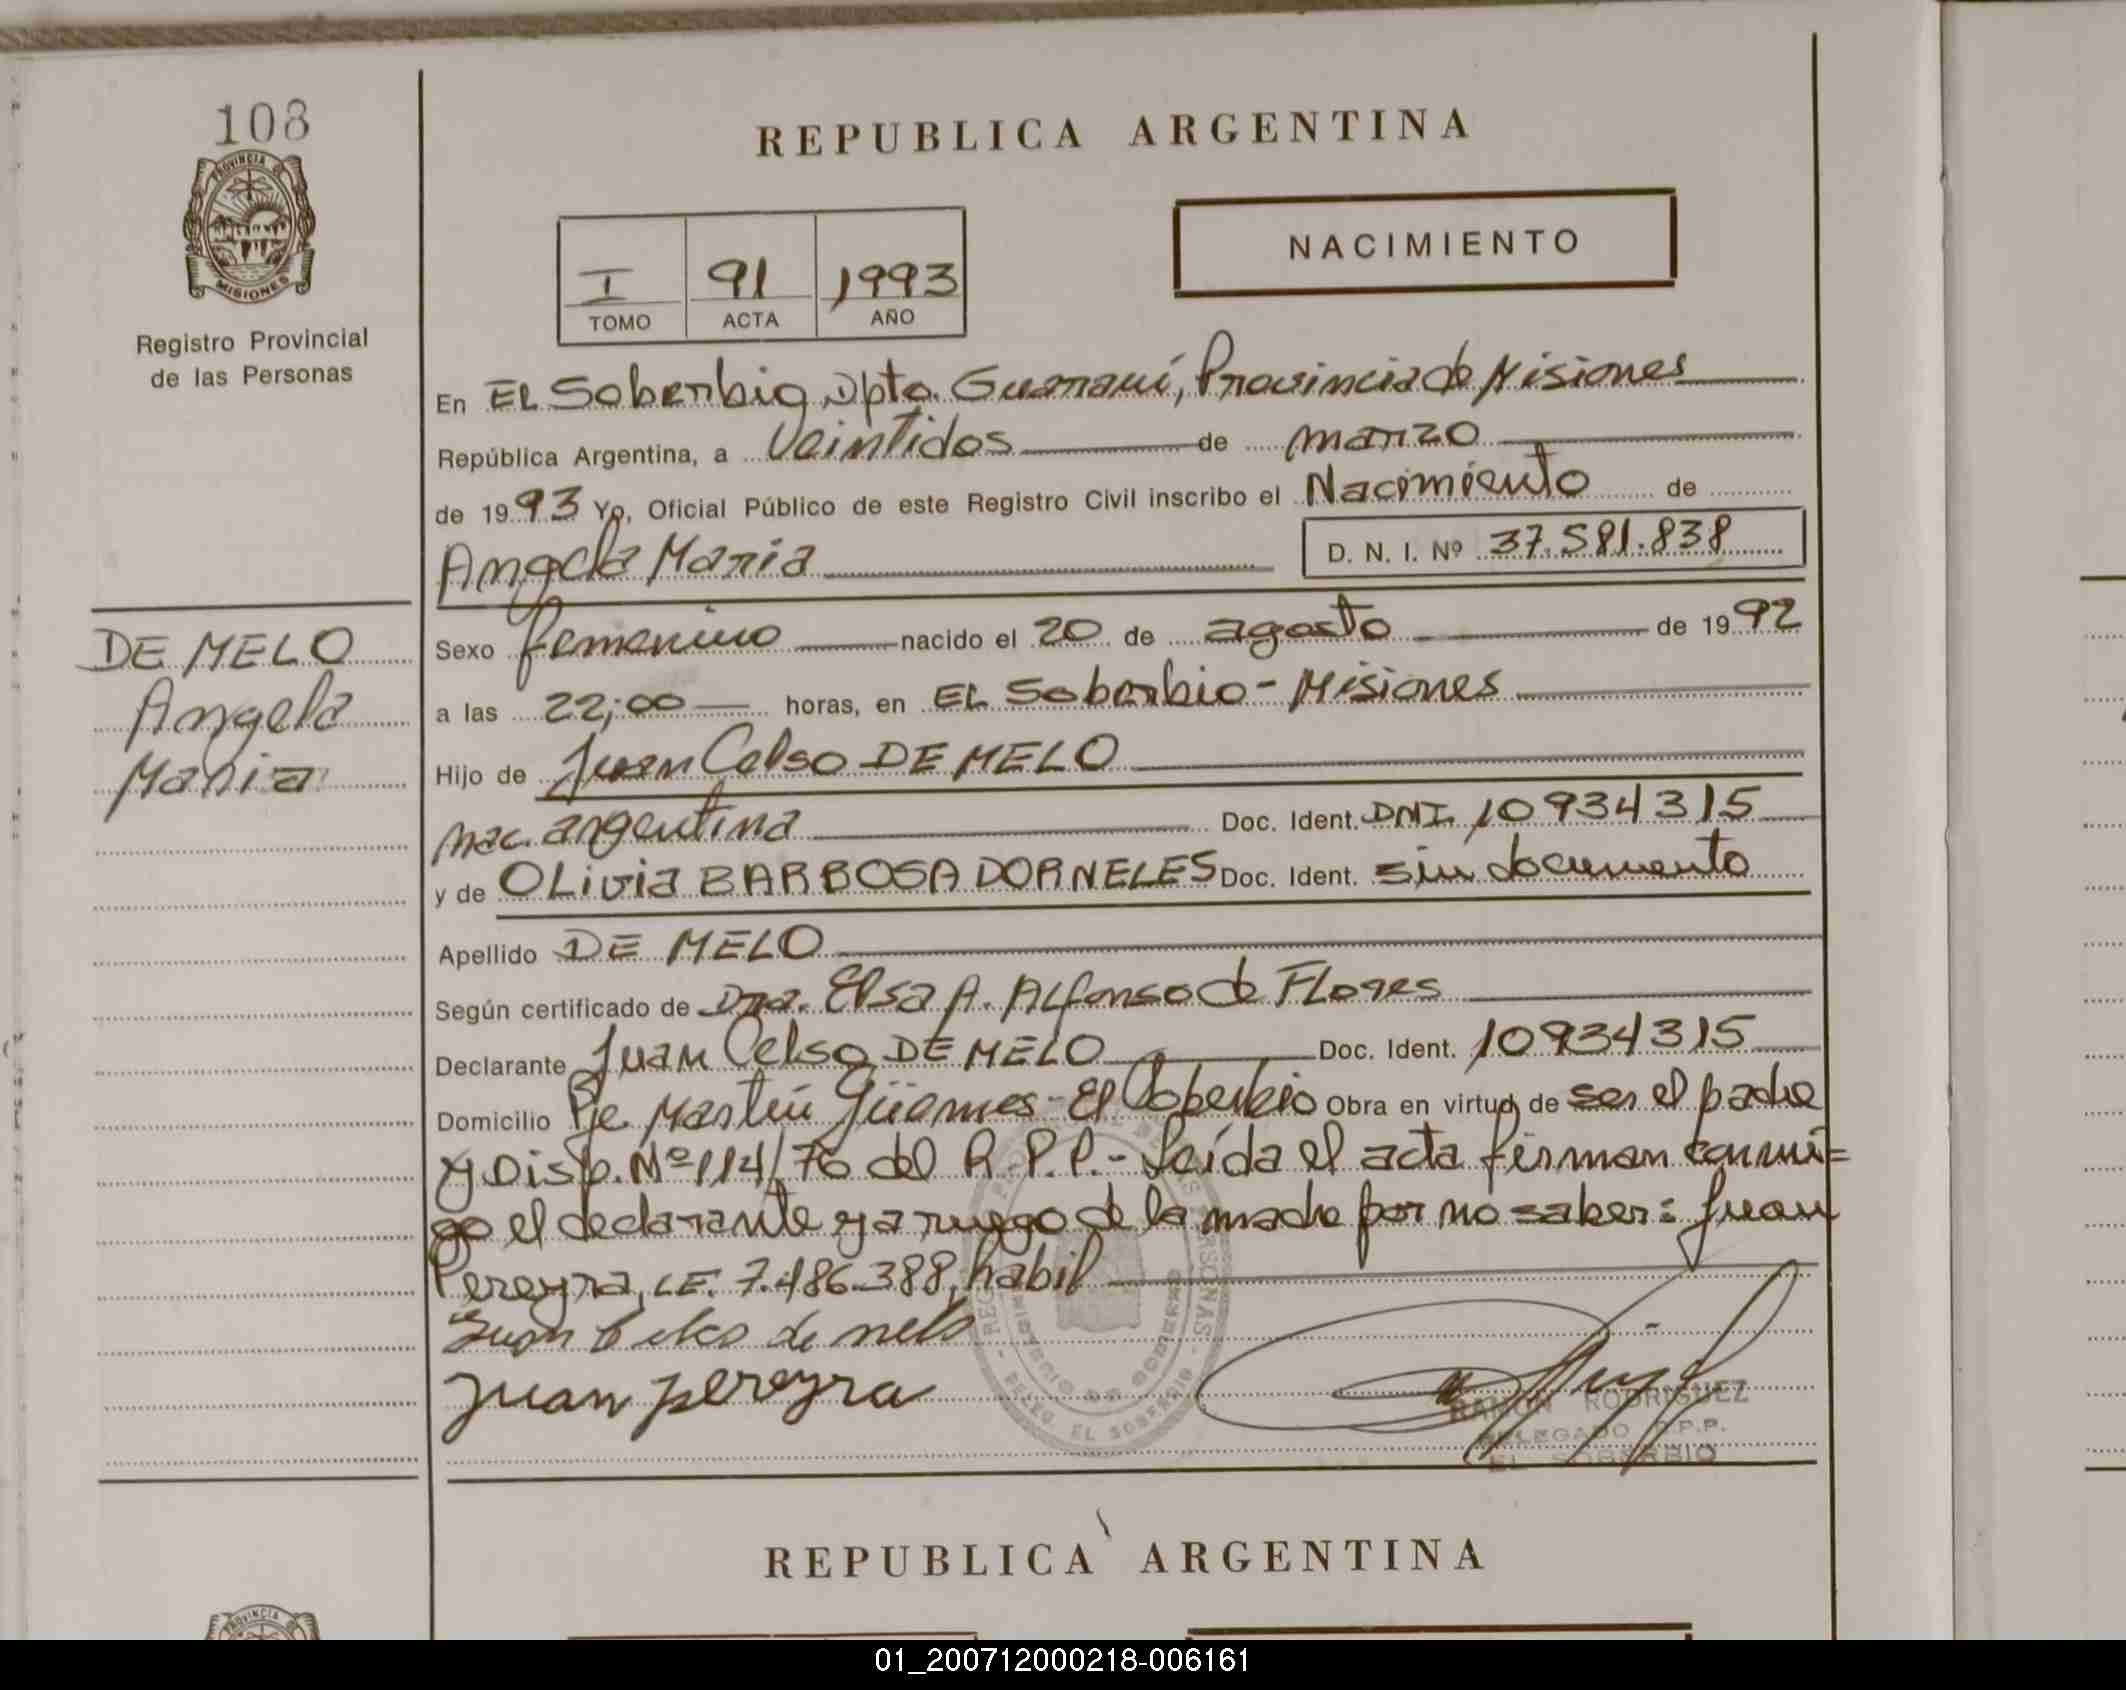 108
PROVINCIA DE
MISIONES
Registro Provincial
de las Personas
DE MELO
Angela
Maria
REPUBLICA ARGENTINA
NACIMIENTO
I 91 1993
TOMO ACTA AÑO
En EL Soberbio, Dpto. Guaraní, Provincia de Misiones
República Argentina, a Veintidos de marzo
de 1993 Yo, Oficial Público de este Registro Civil inscribo el Nacimiento de
Angela Maria D. N. I. Nº 37.581.838
Sexo femenino nacido el 20 de agosto de 1992
a las 22;00 horas, en EL Soberbio - Misiones
Hijo de Juan Celso DE MELO
nac. argentina Doc. Ident. DNI. 10934315
y de OLivia BARBOSA DORNELES Doc. Ident. sin documento
Apellido DE MELO
Según certificado de Dra. Elsa A. Alfonso de FLores
Declarante Juan Celso DE MELO Doc. Ident. 10934315
Domicilio Pje Martín Güemes - El Soberbio Obra en virtud de ser el padre
y Disp. Nº 114/76 del R.P.P.- Leída el acta firman conmi=
go el declarante y a ruego de la madre por no saber: Juan
Pereyra, LE. 7.486.388, habil
Juan Celso de melo
juan pereyra
RAMON RODRIGUEZ
DELEGADO R.P.P.
EL SOBERBIO
REPUBLICA ARGENTINA
PROVINCIA
01_200712000218-006161